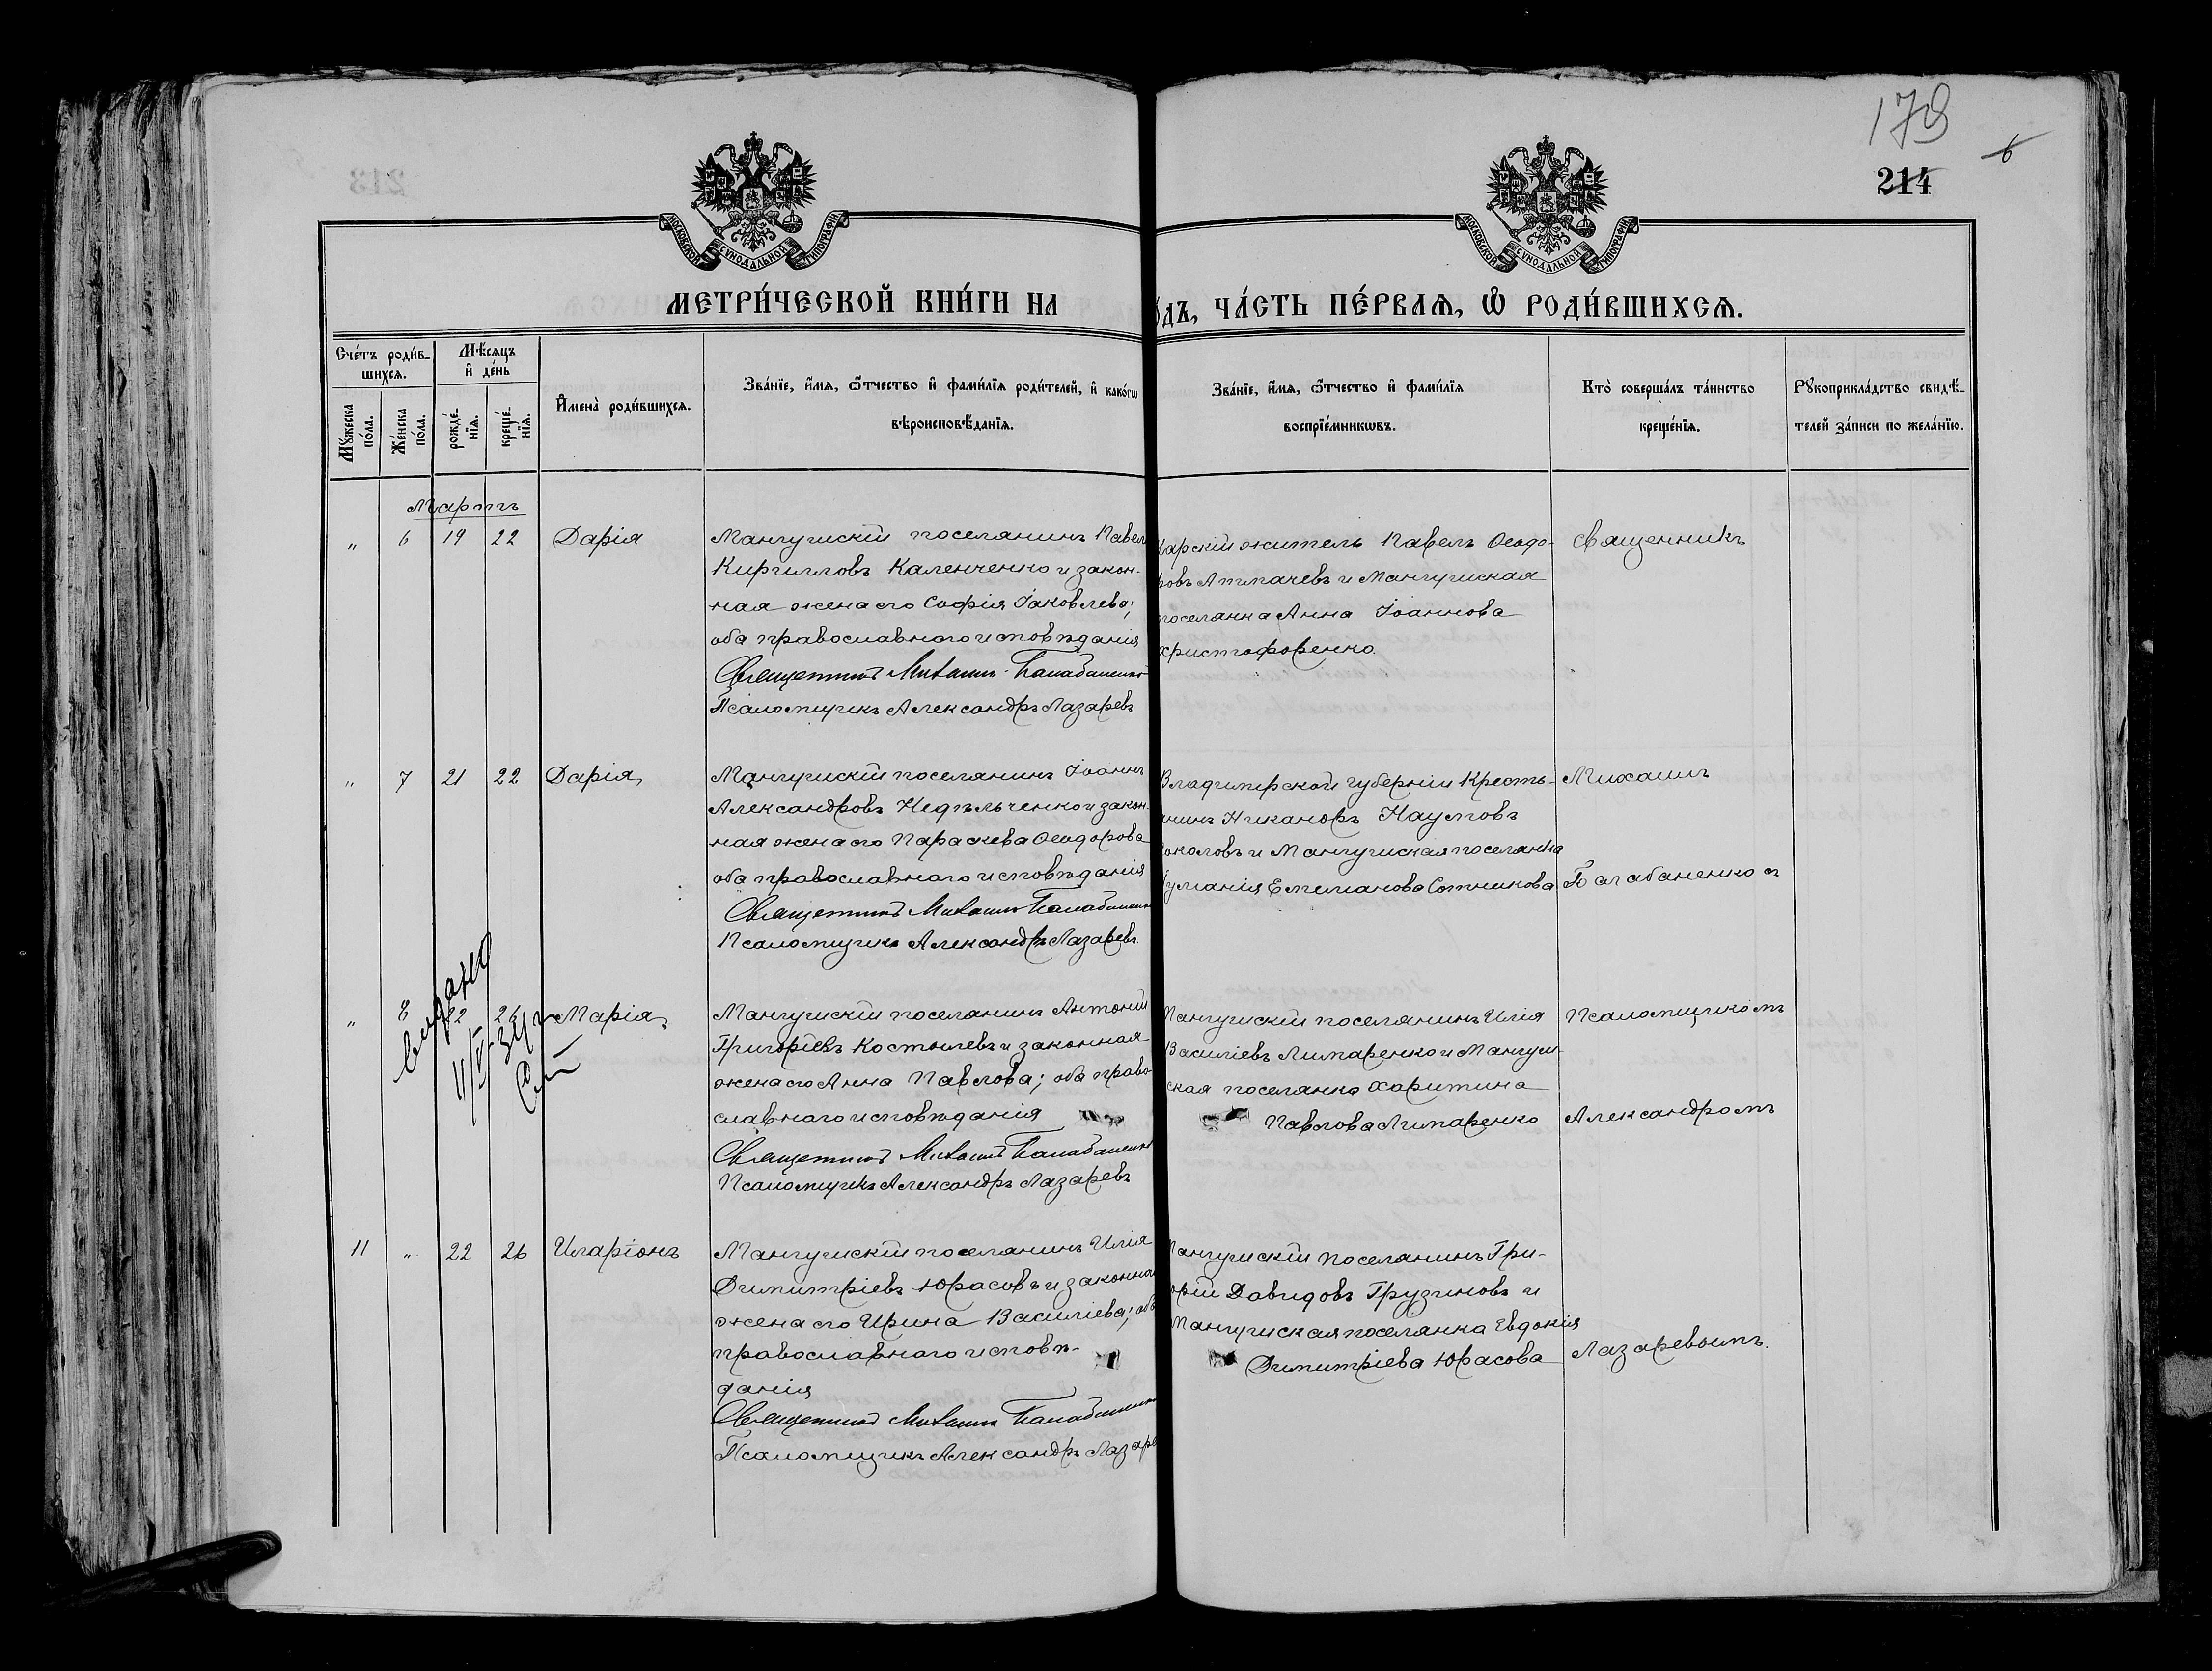 179
6
214
МОСКОВСКОЙ СѴНОДАЛЬНОЙ ТИПОГРАФІИ
МОСКОВСКОЙ СѴНОДАЛЬНОЙ ТИПОГРАФІИ
МЕТРИ́ЧЕСКОЙ КНИ́ГИ НА
О́ДЪ, ЧА́СТЬ ПЕ́РВАѦ, Ѽ РОДИ́ВШИХСѦ.
Сче́тъ роди́в-
шихсѧ.
Мѣ́сѧцъ
и҆ де́нь
Мꙋ́жеска
по́ла.
Же́нска
по́ла.
рожде́-
нїѧ.
креще́-
нїѧ.
И҆мена̀ роди́вшихсѧ.
Зва́нїе, и҆́мѧ, ѻ҆́тчество и҆ фами́лїѧ роди́телей, и҆ како́гѡ
вѣроисповѣ́данїѧ.
Зва́нїе, и҆́мѧ, ѻ҆́тчество и҆ фами́лїѧ
воспрїе́мникѡвъ.
Кто̀ соверша́лъ та́инство
креще́нїѧ.
Рꙋкоприкла́дство свидѣ́-
телей за́писи по жела́нїю.
Мартъ
" 6 19 22 Дарія
Мангушскій поселянинъ Павелъ
Кирилловъ Каленченко и закон-
ная жена его Софія Іаковлева;
оба православнаго исповѣданія
Священникъ Михаилъ Балабаненко
Псаломщикъ Александръ Лазаревъ
Карскій житель Павелъ Ѳеодо-
ровъ Апмачевъ и Мангушская
поселянка Анна Іоаннова
Христофоренко.
Священникъ
" 7 21 22 Дарія
Мангушскій поселянинъ Іоаннъ
Александровъ Недѣльченко и закон-
ная жена его Параскева Ѳеодорова
оба православнаго исповѣданія
Священникъ Михаилъ Балабаненко
Псаломщикъ Александръ Лазаревъ
Владимірской губерніи Кресть-
нинъ Никаноръ Наумовъ
околовъ и Мангушская поселянка
уманія Емеліанова Сотникова
Михаилъ
Балабаненко съ
выдано
11/VI 34 г
" 8 22 26 Марія
Мангушскій поселянинъ Антоній
Григоріевъ Костылевъ и законная
жена его Анна Павлова; оба право-
славнаго исповѣданія
Священникъ Михаилъ Балабаненко
Псаломщикъ Александръ Лазаревъ
Мангушскій поселянинъ Илія
Василіевъ Лимаренко и Мангуш-
ская поселянка Харитина
Павлова Лимаренко
Псаломщикомъ
Александромъ
11 " 22 26 Иларіонъ
Мангушскій поселянинъ Илія
Димитріевъ Юрасовъ и законная
жена его Ирина Василіева; оба
православнаго исповѣ-
данія
Священникъ Михаилъ Балабаненко
Псаломщикъ Александръ Лазаре
Мангушскій поселянинъ Гри-
орій Давидовъ Грузиновъ и
Мангушская поселянка Евдокія
Димитріева Юрасова
Лазаревымъ.